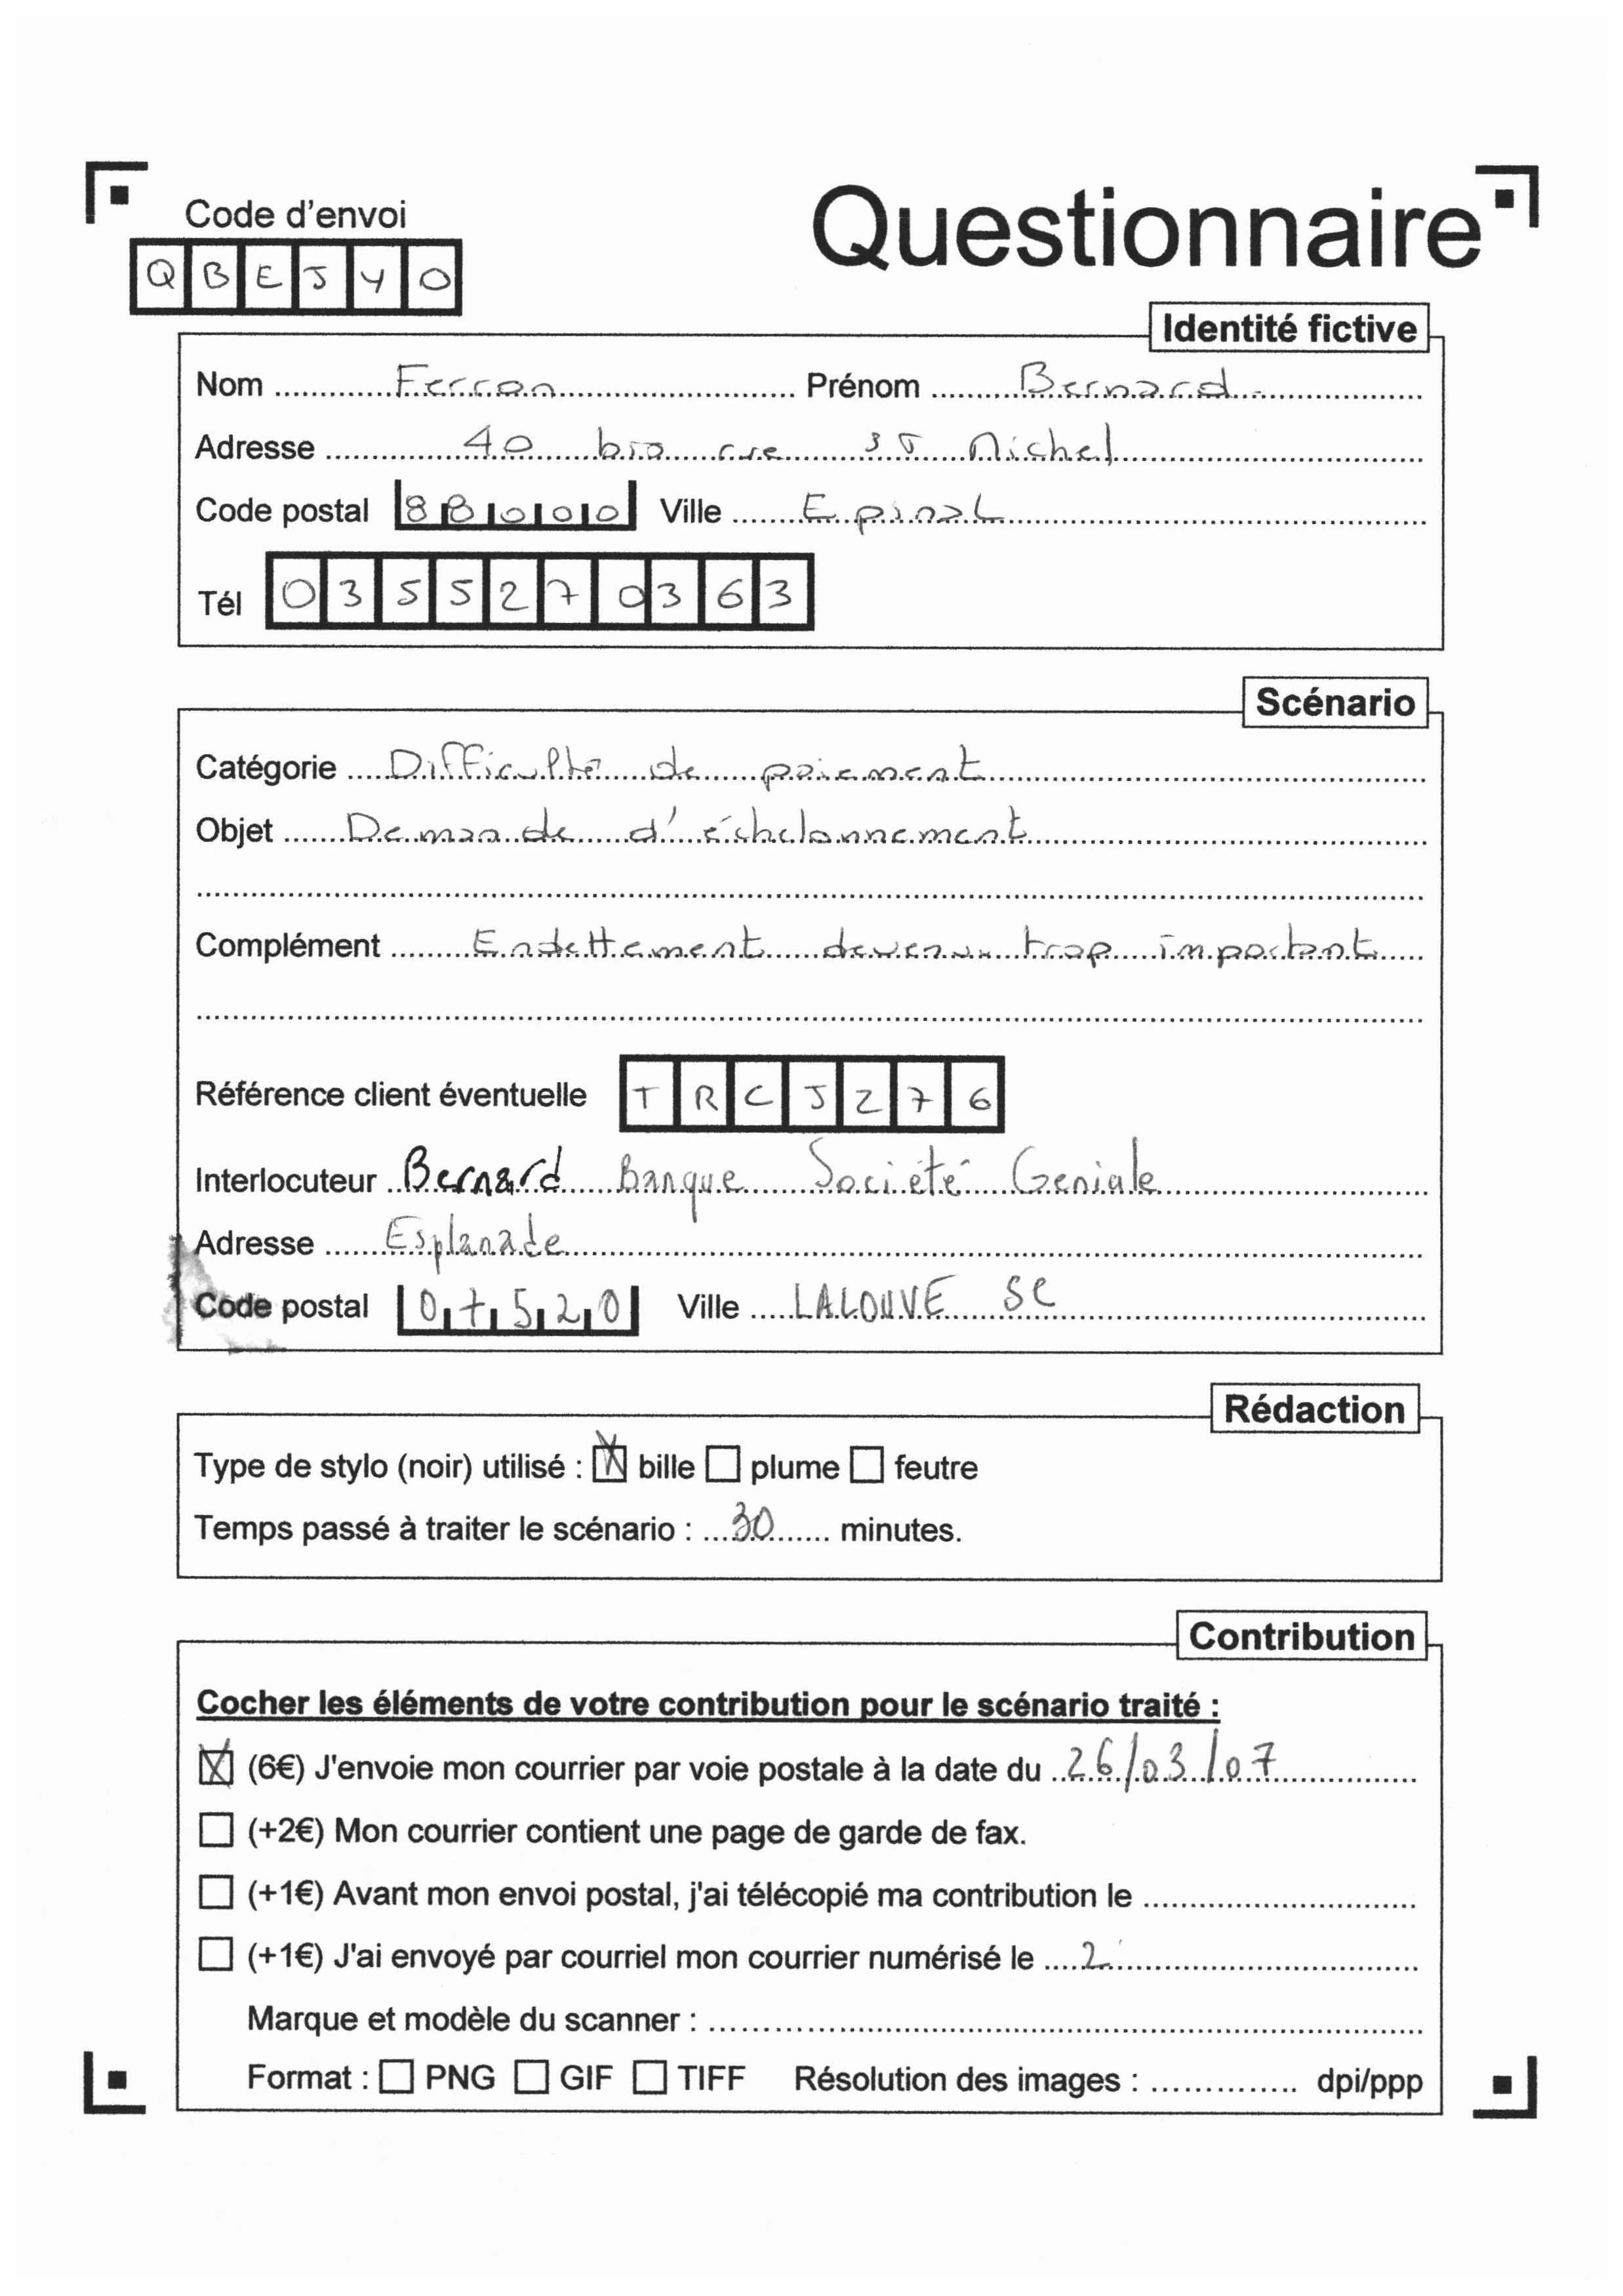 Code d'envoi
Questionnaire
QBEJY0
Identité fictive
Nom Ferron Prénom Bernard
Adresse 40 bis rue St Michel
Code postal 88000 Ville Epinal
Tél 0355270363
Scénario
Catégorie Difficulté de paiement
Objet Demande d'échelonnement
Complément Endettement devenu trop important
Référence client éventuelle TRCJZ76
Interlocuteur Bernard Banque Société Geniale
Adresse Esplanade
Code postal 07520 Ville LALOUVE SC
Rédaction
Type de stylo (noir) utilisé : bille plume feutre
Temps passé à traiter le scénario : 30 minutes.
Contribution
Cocher les éléments de votre contribution pour le scénario traité :
(6€) J'envoie mon courrier par voie postale à la date du 26/03/07
(+2€) Mon courrier contient une page de garde de fax.
(+1€) Avant mon envoi postal, j'ai télécopié ma contribution le
(+1€) J'ai envoyé par courriel mon courrier numérisé le 2
Marque et modèle du scanner :
Format : PNG GIF TIFF Résolution des images : dpi/ppp